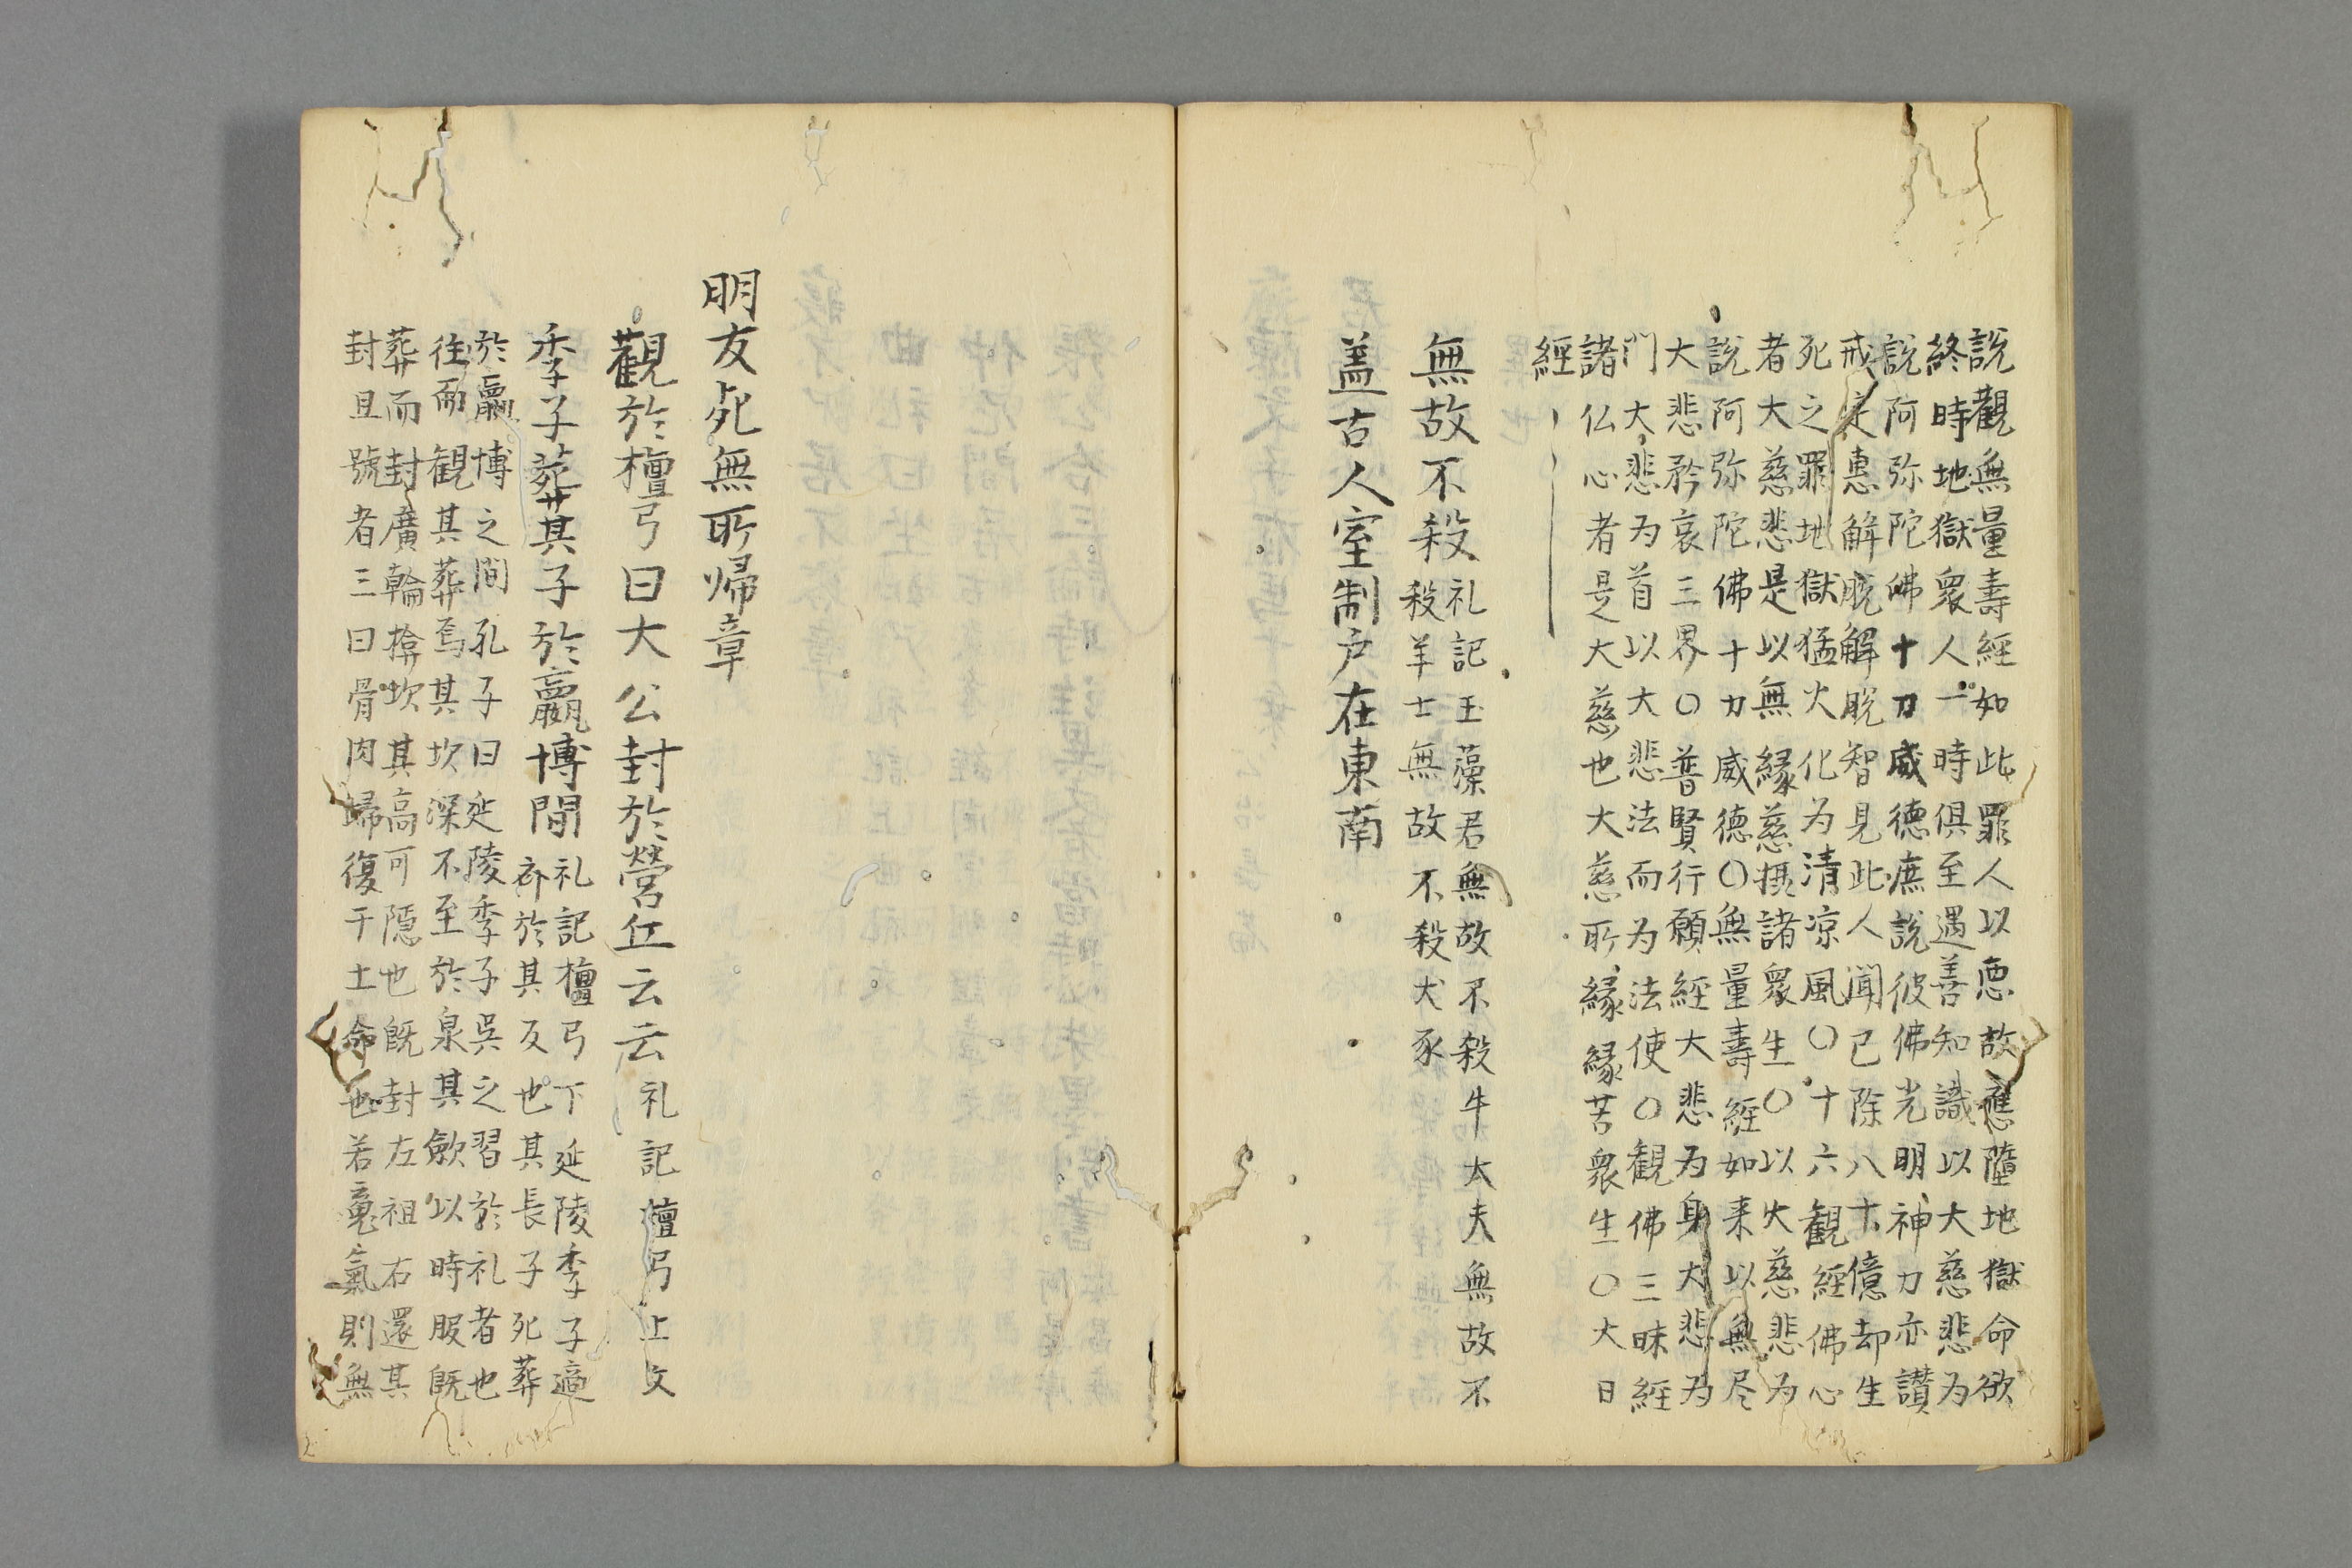 說觀無量壽經如此罪人以悪故應墮地獄命欲
終時地獄衆人一時俱至遇善知識以大慈悲为
說阿弥陀佛十力威德庶說彼佛光明神力亦讃
戒定惠解脫解脫智見此人聞已除八十億却生
死之罪地獄猛火化为清凉風〇十六觀經佛心
者大慈悲是以無縁慈摂諸衆生〇以大慈悲为
說阿弥陀佛十力威德〇無量壽經如来以無尽
大悲矜哀三界〇普賢行願經大悲为身大悲为
門大悲为首以大悲法而为法使〇観佛三昧經
諸仏心者是大慈也大慈所縁縁苦衆生〇大日
經
無故不殺礼記玉藻君無故不殺牛大夫無故不
殺羊士無故不殺犬豕
盖古人室制户在東南
朋友死無所帰章
觀於檀弓曰大公封於營丘云云礼記檀弓上文
季子葬其子於嬴博間礼記檀弓下延陵季子適
齐於其反也其長子死葬
於嬴博之間孔子曰延陵季子吳之習於礼者也
往而観其葬焉其坎深不至於泉其斂以時服既
葬而封廣輪揜坎其高可隱也既封左袒右還其
封且號者三曰骨肉歸復于土命也若䰟氣則無